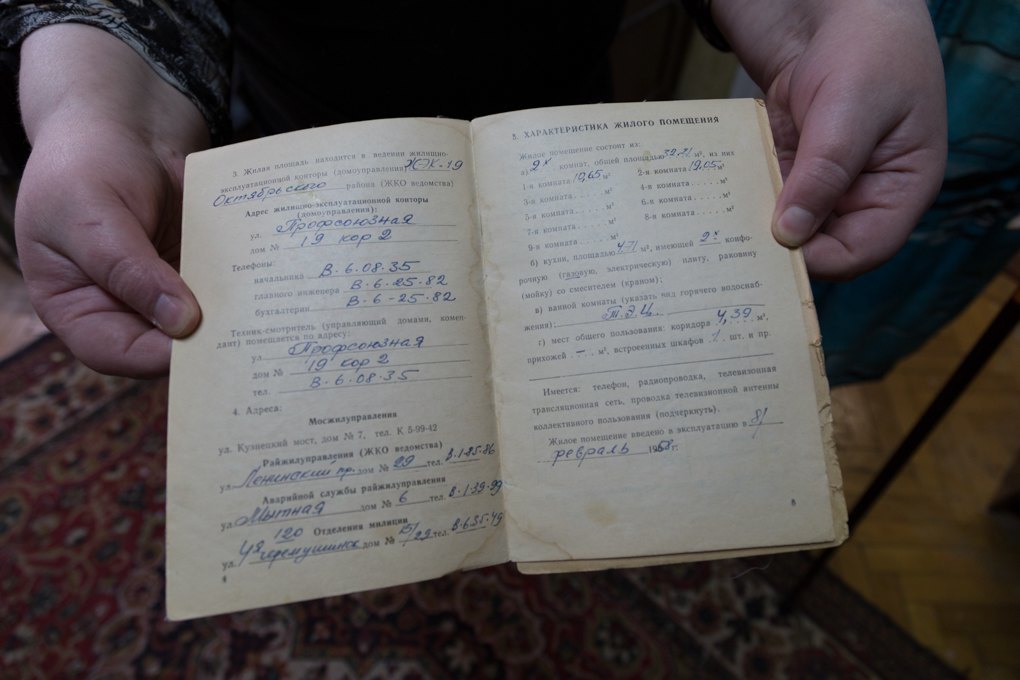 3. Жилая площадь находится в ведении жилищно-
эксплуатационной конторы (домоуправления) ЖЭК-19
Октябрьского района (ЖКО ведомства)
Адрес жилищно-эксплуатационной конторы
(домоуправления):
ул. Профсоюзная
дом № 19 кор 2
Телефоны:
начальника В-6.08-35
главного инженера В-6-25-82
бухгалтерии В-6-25-82
Техник-смотритель (управляющий домами, комен-
дант) помещается по адресу:
ул. Профсоюзная
дом № 19 кор 2
тел. В-6.08-35
4. Адреса:
Мосжилуправления
ул. Кузнецкий мост, дом № 7, тел. К 5-99-42
Райжилуправления (ЖКО ведомства)
ул. Ленинский пр. дом № 29 тел. В-1-85-86
Аварийной службы райжилуправления
ул. Мытная дом № 6 тел. В-1-39-99
120 Отделения милиции
ул. Черемушинск дом № тел. В-6-35-49
5. ХАРАКТЕРИСТИКА ЖИЛОГО ПОМЕЩЕНИЯ
Жилое помещение состоит из:
а) 2х комнат, общей площадью м², из них
1-я комната м² 2-я комната 19,05 м²
3-я комната . . . . . м² 4-я комната . . . . . м²
5-я комната . . . . . м² 6-я комната . . . . . м²
7-я комната . . . . . м² 8-я комната . . . . . м²
9-я комната . . . . . м²
б) кухни, площадью 4,71 м², имеющей 2х конфо-
рочную (газовую, электрическую) плиту, раковину
(мойку) со смесителем (краном);
в) ванной комнаты (указать вид горячего водоснаб-
жения); Т.Э.Ц.
г) мест общего пользования: коридора 4,39 м²,
прихожей — м², встроенных шкафов 1 шт. и пр.
Имеется: телефон, радиопроводка, телевизионная
трансляционная сеть, проводка телевизионной антенны
коллективного пользования (подчеркнуть).
Жилое помещение введено в эксплуатацию в
февраль 1958 г.
8